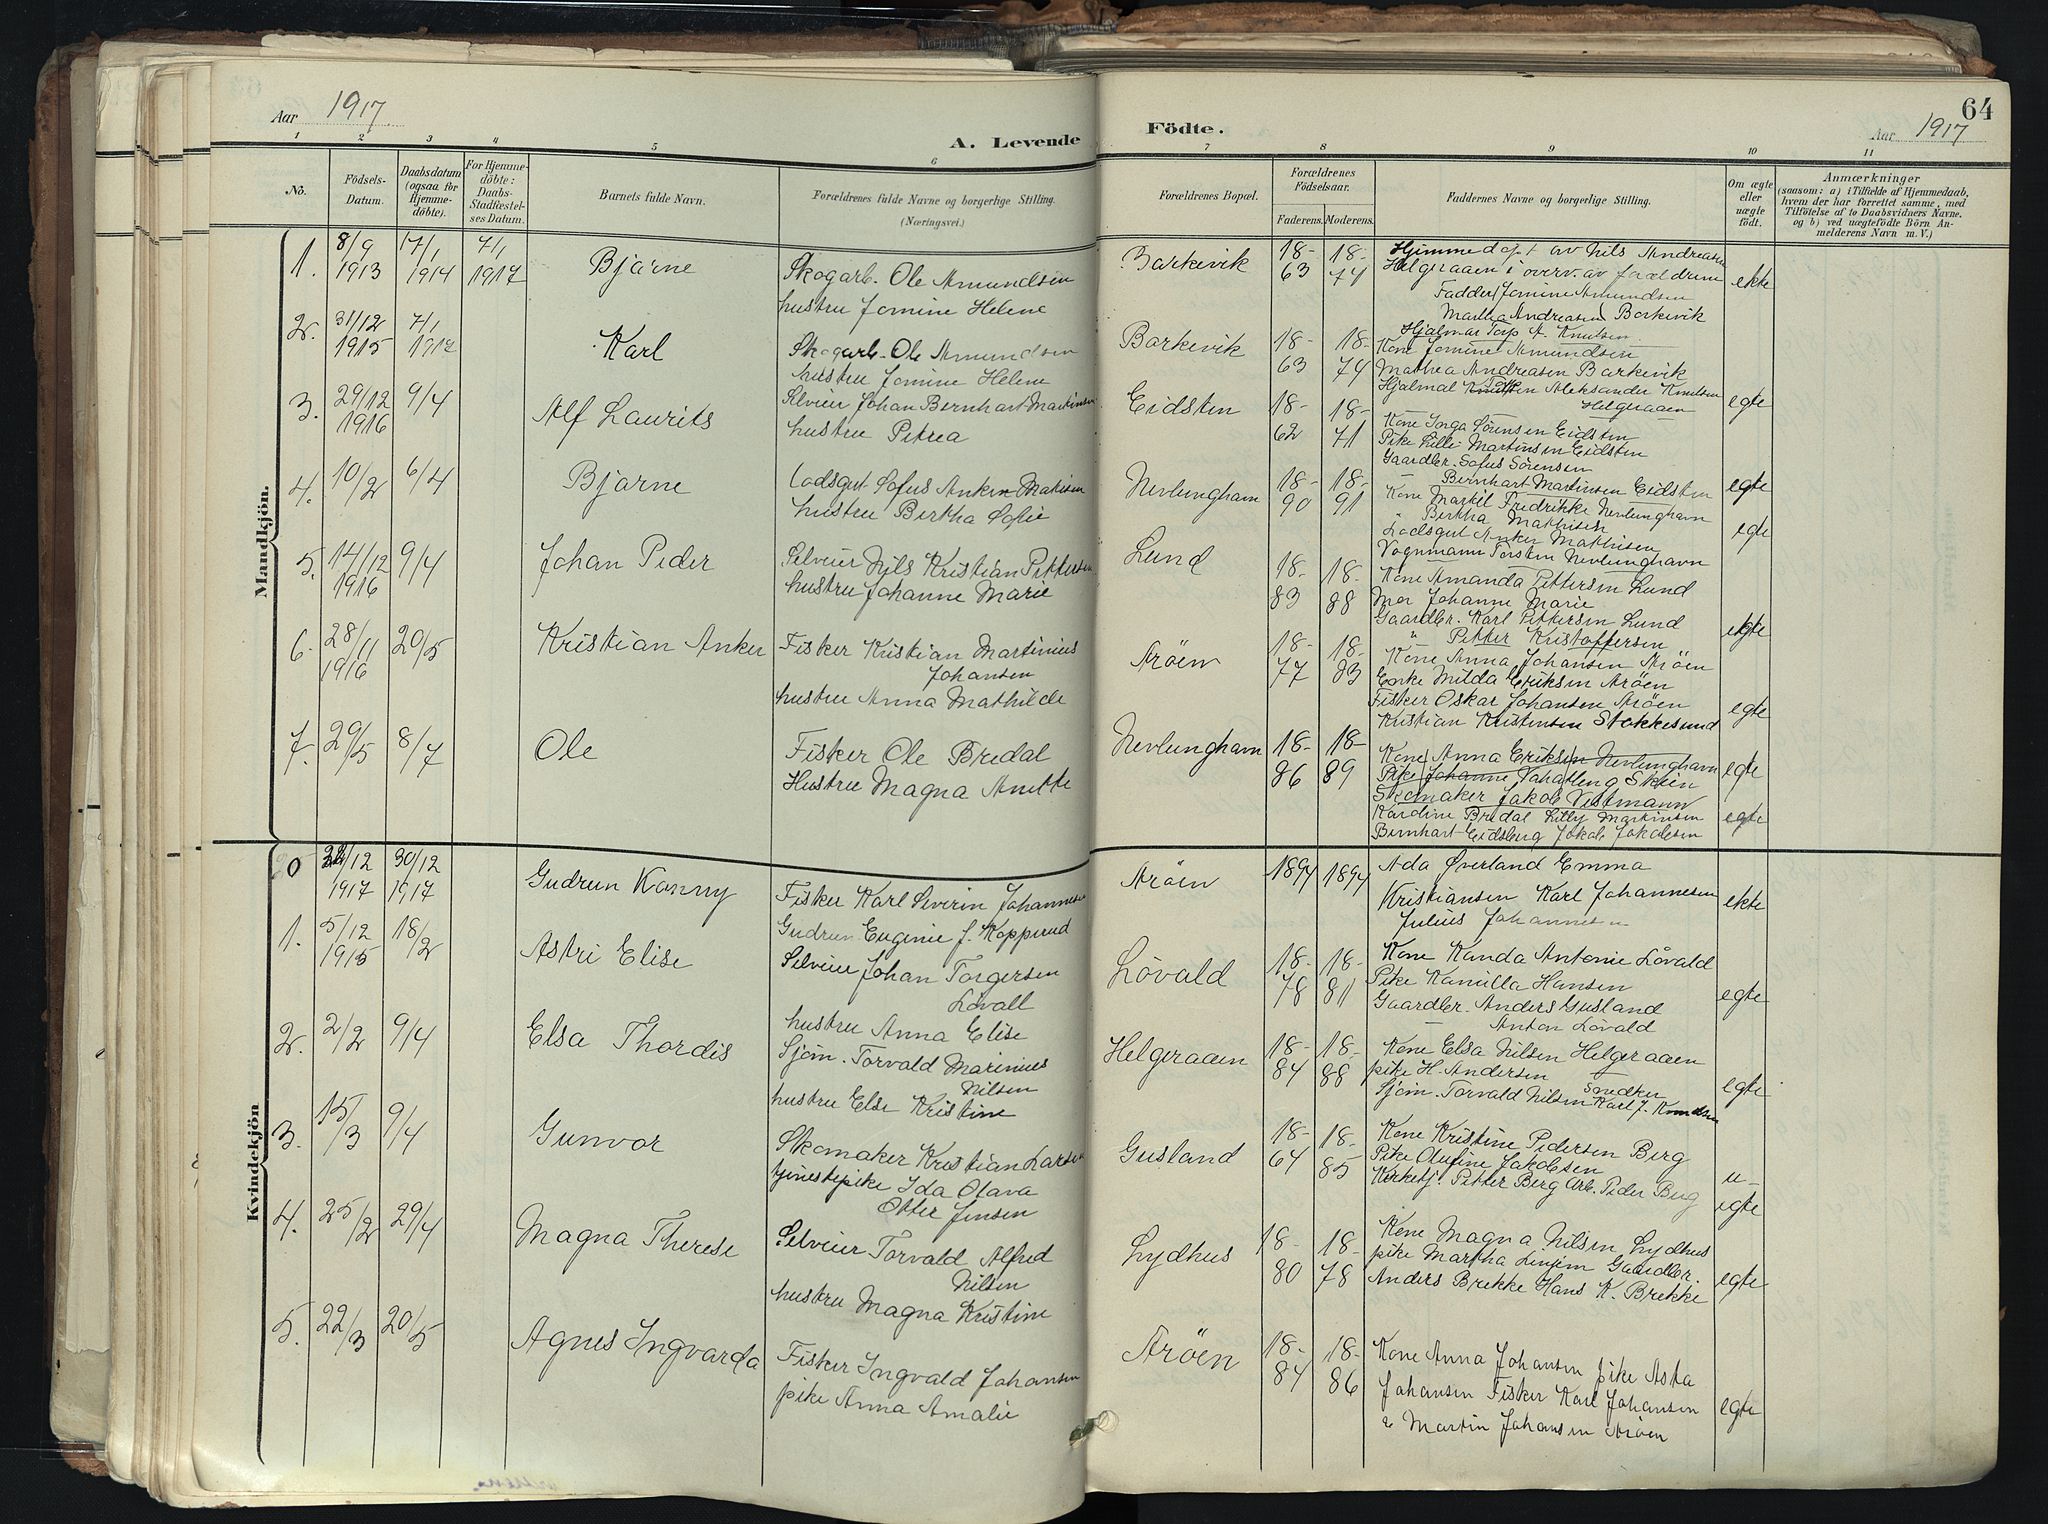 Aar 1917
A. Levende
Födte.
64
Aar 1917
1 2 3 4 5 6 7 8 9 10 11
No.
Födsels-Datum.
Daabsdatum (ogsaa for Hjemme-döbte).
For Hjemme-döbte: Daabs-Stadfæstel-ses Datum.
Barnets fulde Navn.
Forældrenes fulde Navne og borgerlige Stilling.
(Næringsvei.)
Forældrenes Bopæl.
Forældrenes Födselsaar.
Faderens. Moderens.
Faddernes Navne og borgerlige Stilling.
Om ægte eller uægte födt.
Anmærkninger
(saasom: a) i Tilfælde af Hjemmedaab, hvem der har forrettet samme, med Tilföielse af to Daabsvidners Navne. og b) ved uægtefödte Börn An-melderens Navn m. V.)
Mandkjön.
1. 8/9 1913 17/1 1914 7/1 1917 Bjarne
Skogarb. Ole Amundsen
hustru Jomine Helene
Barkevik 18-63 18-74
Hjemmedøpt av Nils Andreasen
Helgeraaen i overv. av foreldrene
Fadder Jomine Amundsen
Marthea Andreasen Barkevik
Hjalmar Torp A. Knutsen
ekte
2. 31/12 1915 7/1 1917 Karl
Skogarb. Ole Amundsen
hustru Jomine Helene
Barkevik 18-63 18-74
Kone Jomine Amundsen
Mathea Andreasen Barkevik
Hjalmar Aleksander Knutsen
Helgeraaen
egte
3. 29/12 1916 9/4 Alf Laurits
Selveier Johan Bernhart Martinsen
hustru Petrea
Eidsten 18-62 18-71
Kone Inga Sørensen Eidsten
Pike Lilli Martinsen Eidsten
Gaardbr. Sofus Sørensen
Bernhart Martinsen Eidsten
egte
4. 10/2 6/4 Bjarne
Lodsgut Sofus Anker Matisen
hustru Bertha Sofie
Nevlungham 18-90 18-91
Kone Fredrikke Nevlungham
" Bertha Mathisen
Lodsgut Anker Mathisen
Vognmann Torsten Nevlungham
egte
5. 14/12 1916 9/4 Johan Peder
Selveier Nils Kristian Pettersen
hustru Johanne Marie
Lund 18-83 18-88
Kone Amanda Pettersen Lund
Mor Johanne Marie
Gaardbr. Karl Pettersen Lund
" Petter Kristoffersen
ekte
6. 28/11 1916 20/5 Kristian Anker
Fisker Kristian Martinius
Johansen
hustru Anna Mathilde
Arøen 18-77 18-83
Kone Anna Johansen Arøen
Enke Milda Eriksen Arøen
Fisker Oskar Johansen Arøen
Kristian Kristensen Stokkesund
egte
7. 29/5 8/7 Ole
Fisker Ole Bredal
Hustru Magna Anette
Nevlungham 18-86 18-89
Kone Anna Eriksen Nevlungham
Pike Johanne Skien
Skomaker Jakob Vestmann
Kardine Bredal Lilly Martinsen
Bernhart Eidsberg Jakob Jakobsen
egte
egte
Kvindekjön
0 /12 1917 30/12 1917 Gudrun Konny
Fisker Karl Severin Johannesen
Gudrun Eugenie J. Kopperud
Arøen 1894 1894
Ada Øverland Emma
Kristiansen Karl Johannesen
Julius Johannesen
ekte
1. 5/12 1915 18/2 Astri Elise
Selveier Johan Torgersen
Løvall
hustru Anna Elise
Løvald 18-78 18-81
Kone Kanda Antonie Løvald
Pike Kamilla Hansen
Gaardbr. Anders Gusland
Anton Løvald
egte
2. 2/2 9/4 Elsa Thordis
Sjøm. Torvald Marinius
Nilsen
hustru Else Kristine
Helgeraaen 18-84 18-88
Kone Elsa Nilsen Helgeraaen
pike H. Andersen
Snedker
Sjøm. Torvald Nilsen Karl J. Knudsen
egte
3. 15/3 9/4 Gunvor
Skomaker Kristian Larsen
tjenestepike Ida Olava
Otter Jensen
Gusland 18-64 18-85
Kone Kristine Pedersen Berg
Pike Olufine Jakobsen
Kirketj. Petter Berg Arb. Peder Berg
u-egte
4. 25/2 29/4 Magna Therese
Selveier Torvald Alfred
Nilsen
hustru Magna Kristine
Lydhus 18-80 18-78
Kone Magna Nilsen Lydhus
pike Martha Gaardbr.
Anders Brekke Hans K. Brekke
egte
5. 22/3 20/5 Agnes Ingvarda
Fisker Ingvald Johansen
pike Anna Amalie
Arøen 18-84 18-86
Kone Anna Johansen pike Asta
Johansen Fisker Karl Johansen
& Martin Johansen Arøen
egte